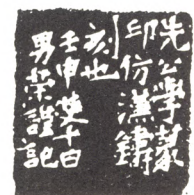 先公學篆
印仿漢
刻也
壬申 十日
男榮謹記